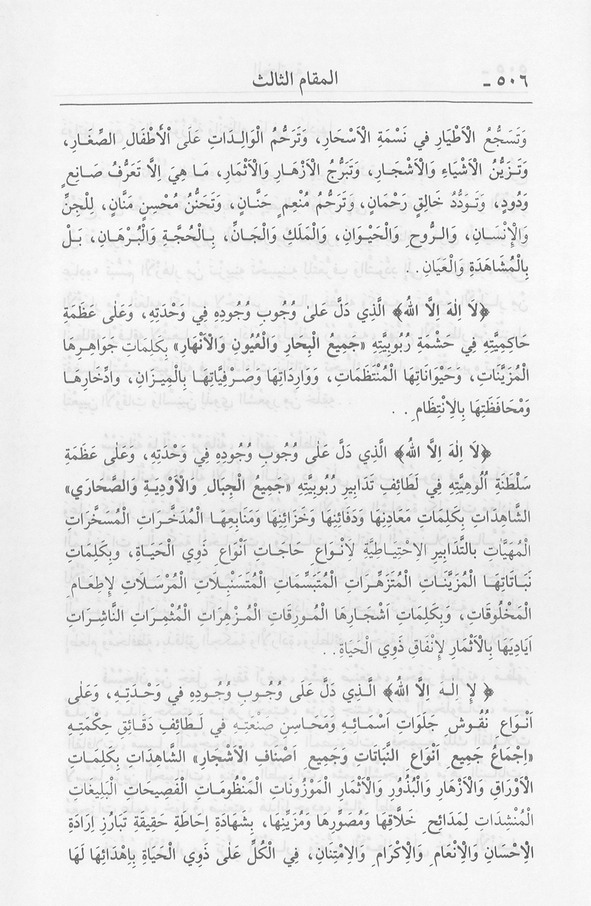 ٥٠٦ ـ المقام الثالث
وَتَسَجُّعُ الْاَطْيَارِ في نَسْمَةِ الْاَسْحَارِ، وَتَرَحُّمُ الْوَالِدَاتِ عَلَى الْاَطْفَالِ الصِّغَارِ،
وَتَزَيُّنُ الْاَشْيَاءِ وَالْاَشْجَارِ، وَتَبَرُّجُ الْاَزْهَارِ وَالْاَثْمَارِ، مَا هِيَ اِلَّا تَعَرُّفُ صَانِعٍ
وَدُودٍ، وَتَوَدُّدُ خَالِقٍ رَحْمَانٍ، وَتَرَحُّمُ مُنْعِمٍ حَنَّانٍ، وَتَحَنُّنُ مُحْسِنٍ مَنَّانٍ، لِلْجِنِّ
وَالْاِنْسَانِ، وَالرُّوحِ وَالْحَيْوَانِ، وَالْمَلَكِ وَالْجَانِّ، بِالْحُجَّةِ وَالْبُرْهَانِ، بَلْ
بِالْمُشَاهَدَةِ وَالْعَيَانِ..
﴿لَا اِلٰهَ اِلَّا اللّٰهُ﴾ الَّذِي دَلَّ عَلٰى وُجُوبِ وُجُودِهِ فِي وَحْدَتِهِ، وَعَلٰى عَظَمَةِ
حَاكِمِيَّتِهِ فِي حَشْمَةِ رُبُوبِيَّتِهِ «جَمِيعُ الْبِحَارِ وَالْعُيُونِ وَالْاَنْهَارِ» بِكَلِمَاتِ جَوَاهِرِهَا
الْمُزَيَّنَاتِ، وَحَيْوَانَاتِهَا الْمُنْتَظَمَاتِ، وَوَارِدَاتِهَا وَصَرْفِيَّاتِهَا بِالْمِيزَانِ، وَادِّخَارِهَا
وَمُحَافَظَتِهَا بِالْاِنْتِظَامِ..
﴿لَا اِلٰهَ اِلَّا اللّٰهُ﴾ الَّذِي دَلَّ عَلٰى وُجُوبِ وُجُودِهِ فِي وَحْدَتِهِ، وَعَلٰى عَظَمَةِ
سَلْطَنَةِ اُلُوهِيَّتِهِ فِي لَطَائِفِ تَدَابِيرِ رُبُوبِيَّتِهِ «جَمِيعُ الْجِبَالِ وَالْاَوْدِيَةِ وَالصَّحَارَي»
الشَّاهِدَاتِ بِكَلِمَاتِ مَعَادِنِهَا وَدَفَائِنِهَا وَخَزَائِنِهَا وَمَنَابِعِهَا الْمُدَخَّرَاتِ الْمُسَخَّرَاتِ
الْمُهَيَّاتِ بِالتَّدَابِيرِ الْاِحْتِيَاطِيَّةِ لِاَنْوَاعِ حَاجَاتِ اَنْوَاعِ ذَوِي الْحَيَاةِ، وَبِكَلِمَاتِ
نَبَاتَاتِهَا الْمُزَيَّنَاتِ الْمُتَزَهِّرَاتِ الْمُتَبَسِّمَاتِ الْمُتَسَنْبِلَاتِ الْمُرْسَلَاتِ لِاِطْعَامِ
الْمَخْلُوقَاتِ، وَبِكَلِمَاتِ اَشْجَارِهَا الْمُورِقَاتِ الْمُزْهِرَاتِ الْمُثْمِرَاتِ النَّاشِرَاتِ
اَيَادِيَهَا بِالْاَثْمَارِ لِاِنْفَاقِ ذَوِي الْحَيَاةِ..
﴿لَا اِلٰهَ اِلَّا اللّٰهُ﴾ الَّذِي دَلَّ عَلٰى وُجُوبِ وُجُودِهِ فِي وَحْدَتِهِ، وَعَلٰى
اَنْوَاعِ نُقُوشِ جَلَوَاتِ اَسْمَائِهِ وَمَحَاسِنِ صَنْعَتِهِ فِي لَطَائِفِ دَقَائِقِ حِكْمَتِهِ
«اِجْمَاعُ جَمِيعِ اَنْوَاعِ النَّبَاتَاتِ وَجَمِيعِ اَصْنَافِ الْاَشْجَارِ» الشَّاهِدَاتِ بِكَلِمَاتِ
الْاَوْرَاقِ وَالْاَزْهَارِ وَالْبُذُورِ وَالْاَثْمَارِ الْمَوْزُونَاتِ الْمَنْظُومَاتِ الْفَصِيحَاتِ الْبَلِيغَاتِ
الْمُنْشِدَاتِ لِمَدَائِحِ خَلَّاقِهَا وَمُصَوِّرِهَا وَمُزَيِّنِهَا، بِشَهَادَةِ اِحَاطَةِ حَقِيقَةِ تَبَارُزِ اِرَادَةِ
الْاِحْسَانِ وَالْاِنْعَامِ وَالْاِكْرَامِ وَالْاِمْتِنَانِ، فِي الْكُلِّ عَلٰى ذَوِي الْحَيَاةِ بِاِهْدَائِهَا لَهَا